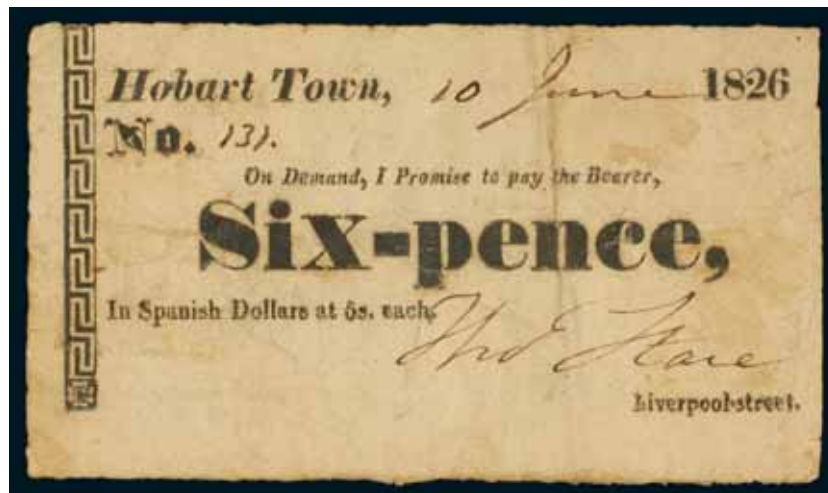 Hobart Town, 10 June 1826
No. 131.
On Demand, I Promise to pay the Bearer,
Six-pence,
In Spanish Dollars at 5s. each.
Thos Stace
Liverpool-street.